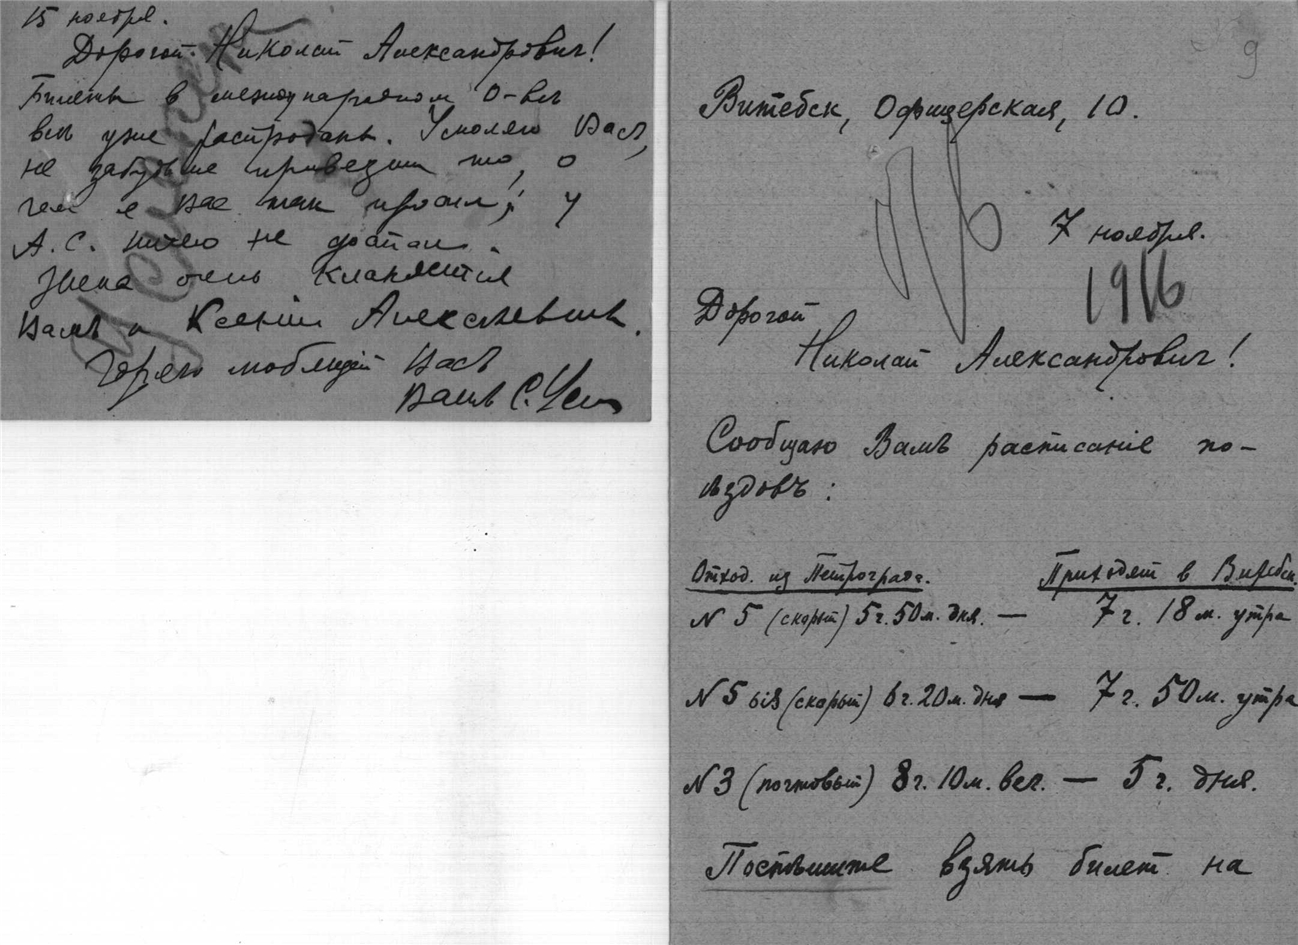 15 ноября.
Дорогой Николай Александрович!
Билеты в международном О-ве
все уже распроданы. Умоляю Васъ,
не забудьте привезти то, о
чем я Вас так просил; у
А.С. ничего не достал.
Жена очень кланяется
Вамъ и Ксеніи Алексеевне.
Горячо любящій Васъ
Вашъ С.
9
Витебск, Офицерская, 10.
7 ноября.
1916
Дорогой
Николай Александрович!
Сообщаю Вамъ расписаніе по-
ѣздовъ:
Отход. из Петрограда. Приходят в Витебск.
N 5 (скорый) 5 г. 50 м. дня. — 7 г. 18 м. утра
N 5 bis (скорый) 6 г. 20 м. дня — 7 г. 50 м. утра
N 3 (почтовый) 8 г. 10 м. веч. — 5 г. дня.
Поспѣшите взять билет на